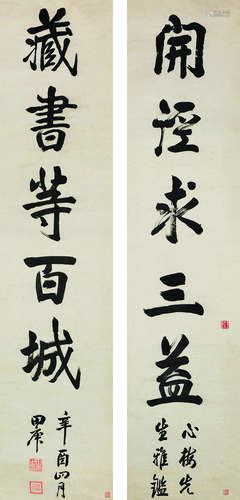 開徑求三益
心梅先
生雅鑑
藏書等百城
辛酉四月
田庚